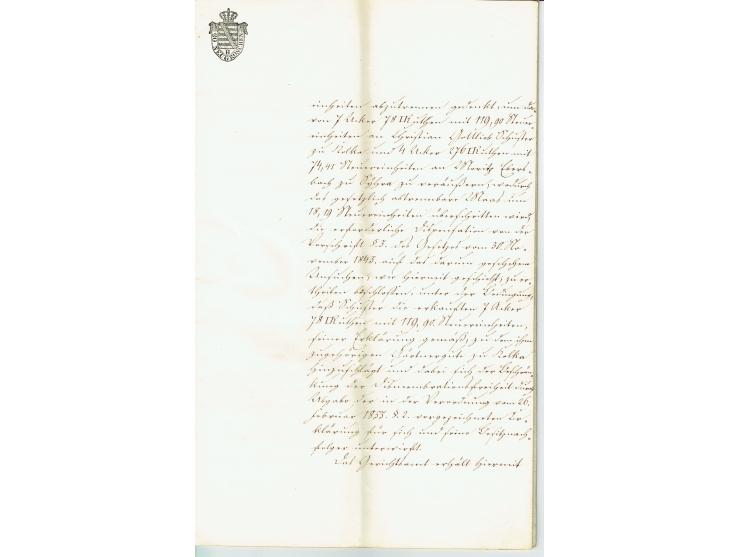 NEUGROSCHEN
einheiten abzutrennen gedenkt, um da-
von 7 Acker 78 □Ruthen mit 119,90 Steuer-
einheiten an Christian Gottlieb Schuster
zu Kolka und 4 Acker 276 □Ruthen mit
74,41 Steuereinheiten an Moritz Ebers-
bach zu Syhra zu veräußern, wodurch
das gesetzlich abtrennbare Maas um
18,19 Steuereinheiten überschritten wird,
die erforderliche Dispensation von der
Vorschrift §.3. des Gesetzes vom 30. No-
vember 1843. auf das darum geschehene
Ansuchen, wie hiermit geschieht, zu er-
theilen beschlossen, unter der Bedingung,
daß Schuster die erkauften 7 Acker
78 □Ruthen mit 119,90. Steuereinheiten,
seiner Erklärung gemäß, zu dem ihm
zugehörigen Gärtnergute zu Kolka
hinzuschlägt und dabei sich der Beschrän-
kung der Dismembrationsfreiheit durch
Abgabe der in der Verordnung vom 26.
Februar 1853. §.2. vorgezeichneten Er-
klärung für sich und seine Besitznach-
folger unterwirft.
Das Gerichtsamt erhält hiermit